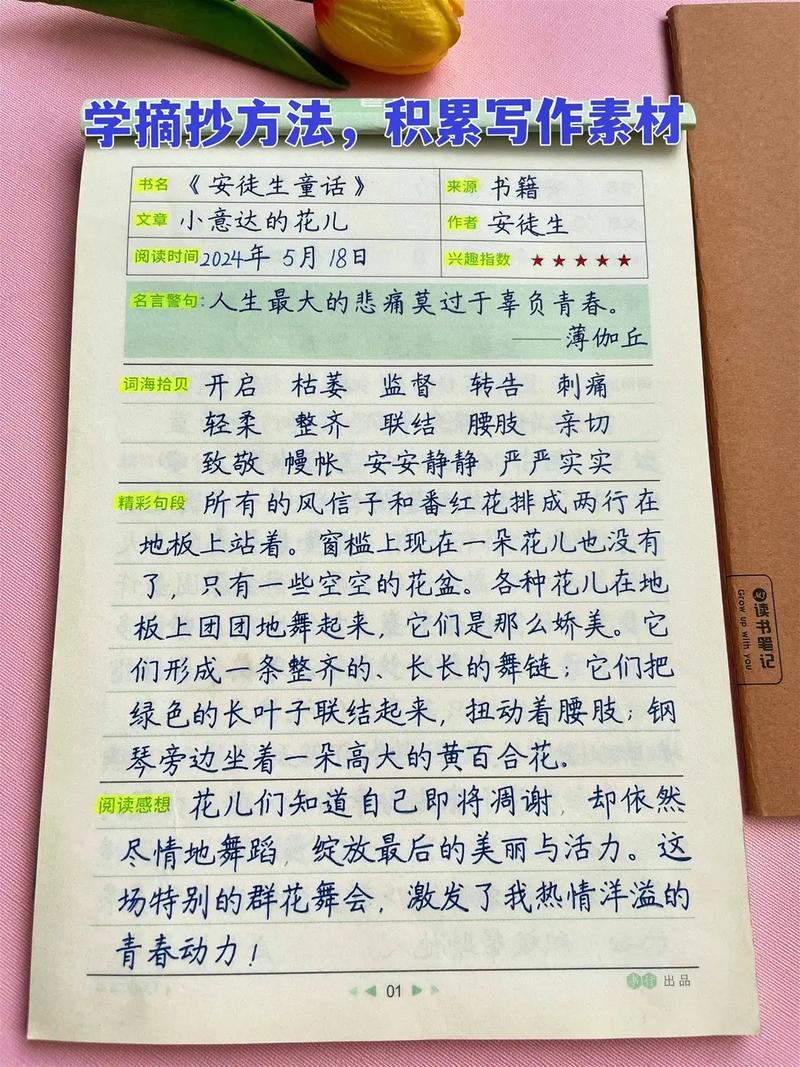 学摘抄方法，积累写作素材
书名 《安徒生童话》 来源 书籍
文章 小意达的花儿 作者 安徒生
阅读时间 2024年 5月 18日 兴趣指数 ★★★★★
名言警句: 人生最大的悲痛莫过于辜负青春。
——薄伽丘
词海拾贝 开启 枯萎 监督 转告 刺痛
轻柔 整齐 联结 腰肢 亲切
致敬 幔帐 安安静静 严严实实
精彩句段 所有的风信子和番红花排成两行在
地板上站着。窗槛上现在一朵花儿也没有
了，只有一些空空的花盆。各种花儿在地
板上团团地舞起来，它们是那么娇美。它
们形成一条整齐的、长长的舞链；它们把
绿色的长叶子联结起来，扭动着腰肢；钢
琴旁边坐着一朵高大的黄百合花。
阅读感想 花儿们知道自己即将凋谢，却依然
尽情地舞蹈，绽放最后的美丽与活力。这
场特别的群花舞会，激发了我热情洋溢的
青春动力！
01
书行 出品
读书笔记
Grow up with you